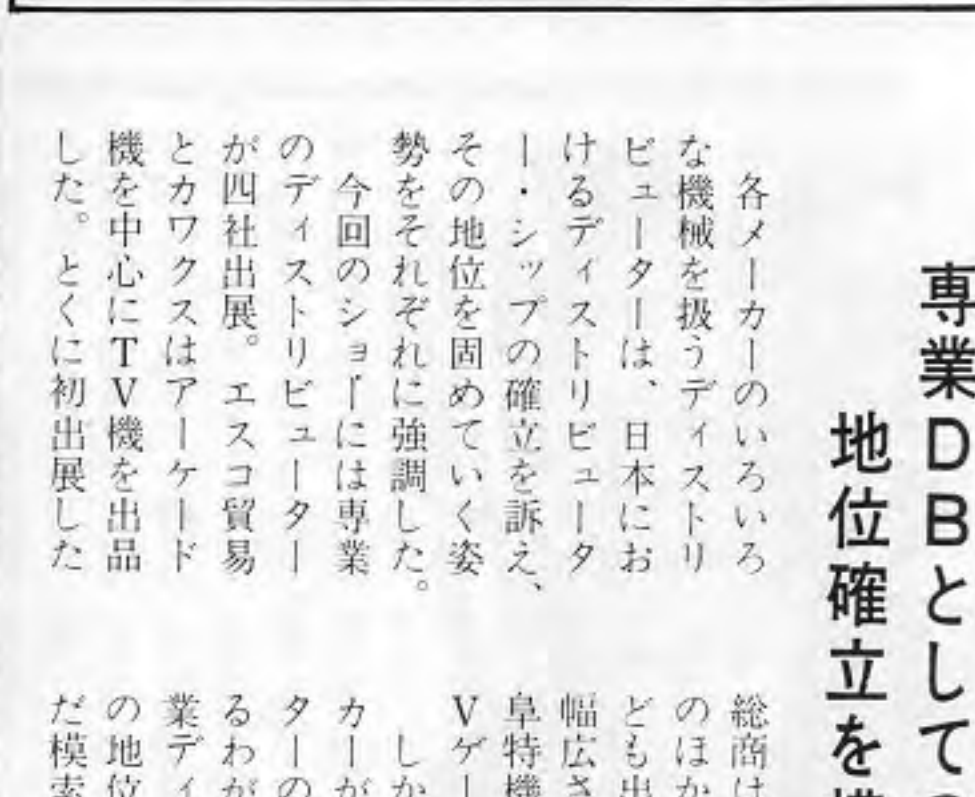 専業DBとしての
地位確立を模
各メーカーのいろいろ
な機械を扱うディストリ
ビューターは、日本にお
けるディストリビュータ
ー・シップの確立を訴え、
その地位を固めていく姿
勢をそれぞれに強調した。
今回のショーには専業
のディストリビューター
が四社出展。エスコ貿易
とカワクスはアーケード
機を中心にTV機を出品
した。とくに初出展した
総商は
のほか
ども出
幅広さ
阜特機
Vゲー
しか
カーが
ターの
るわが
業ディ
の地位
だ模索